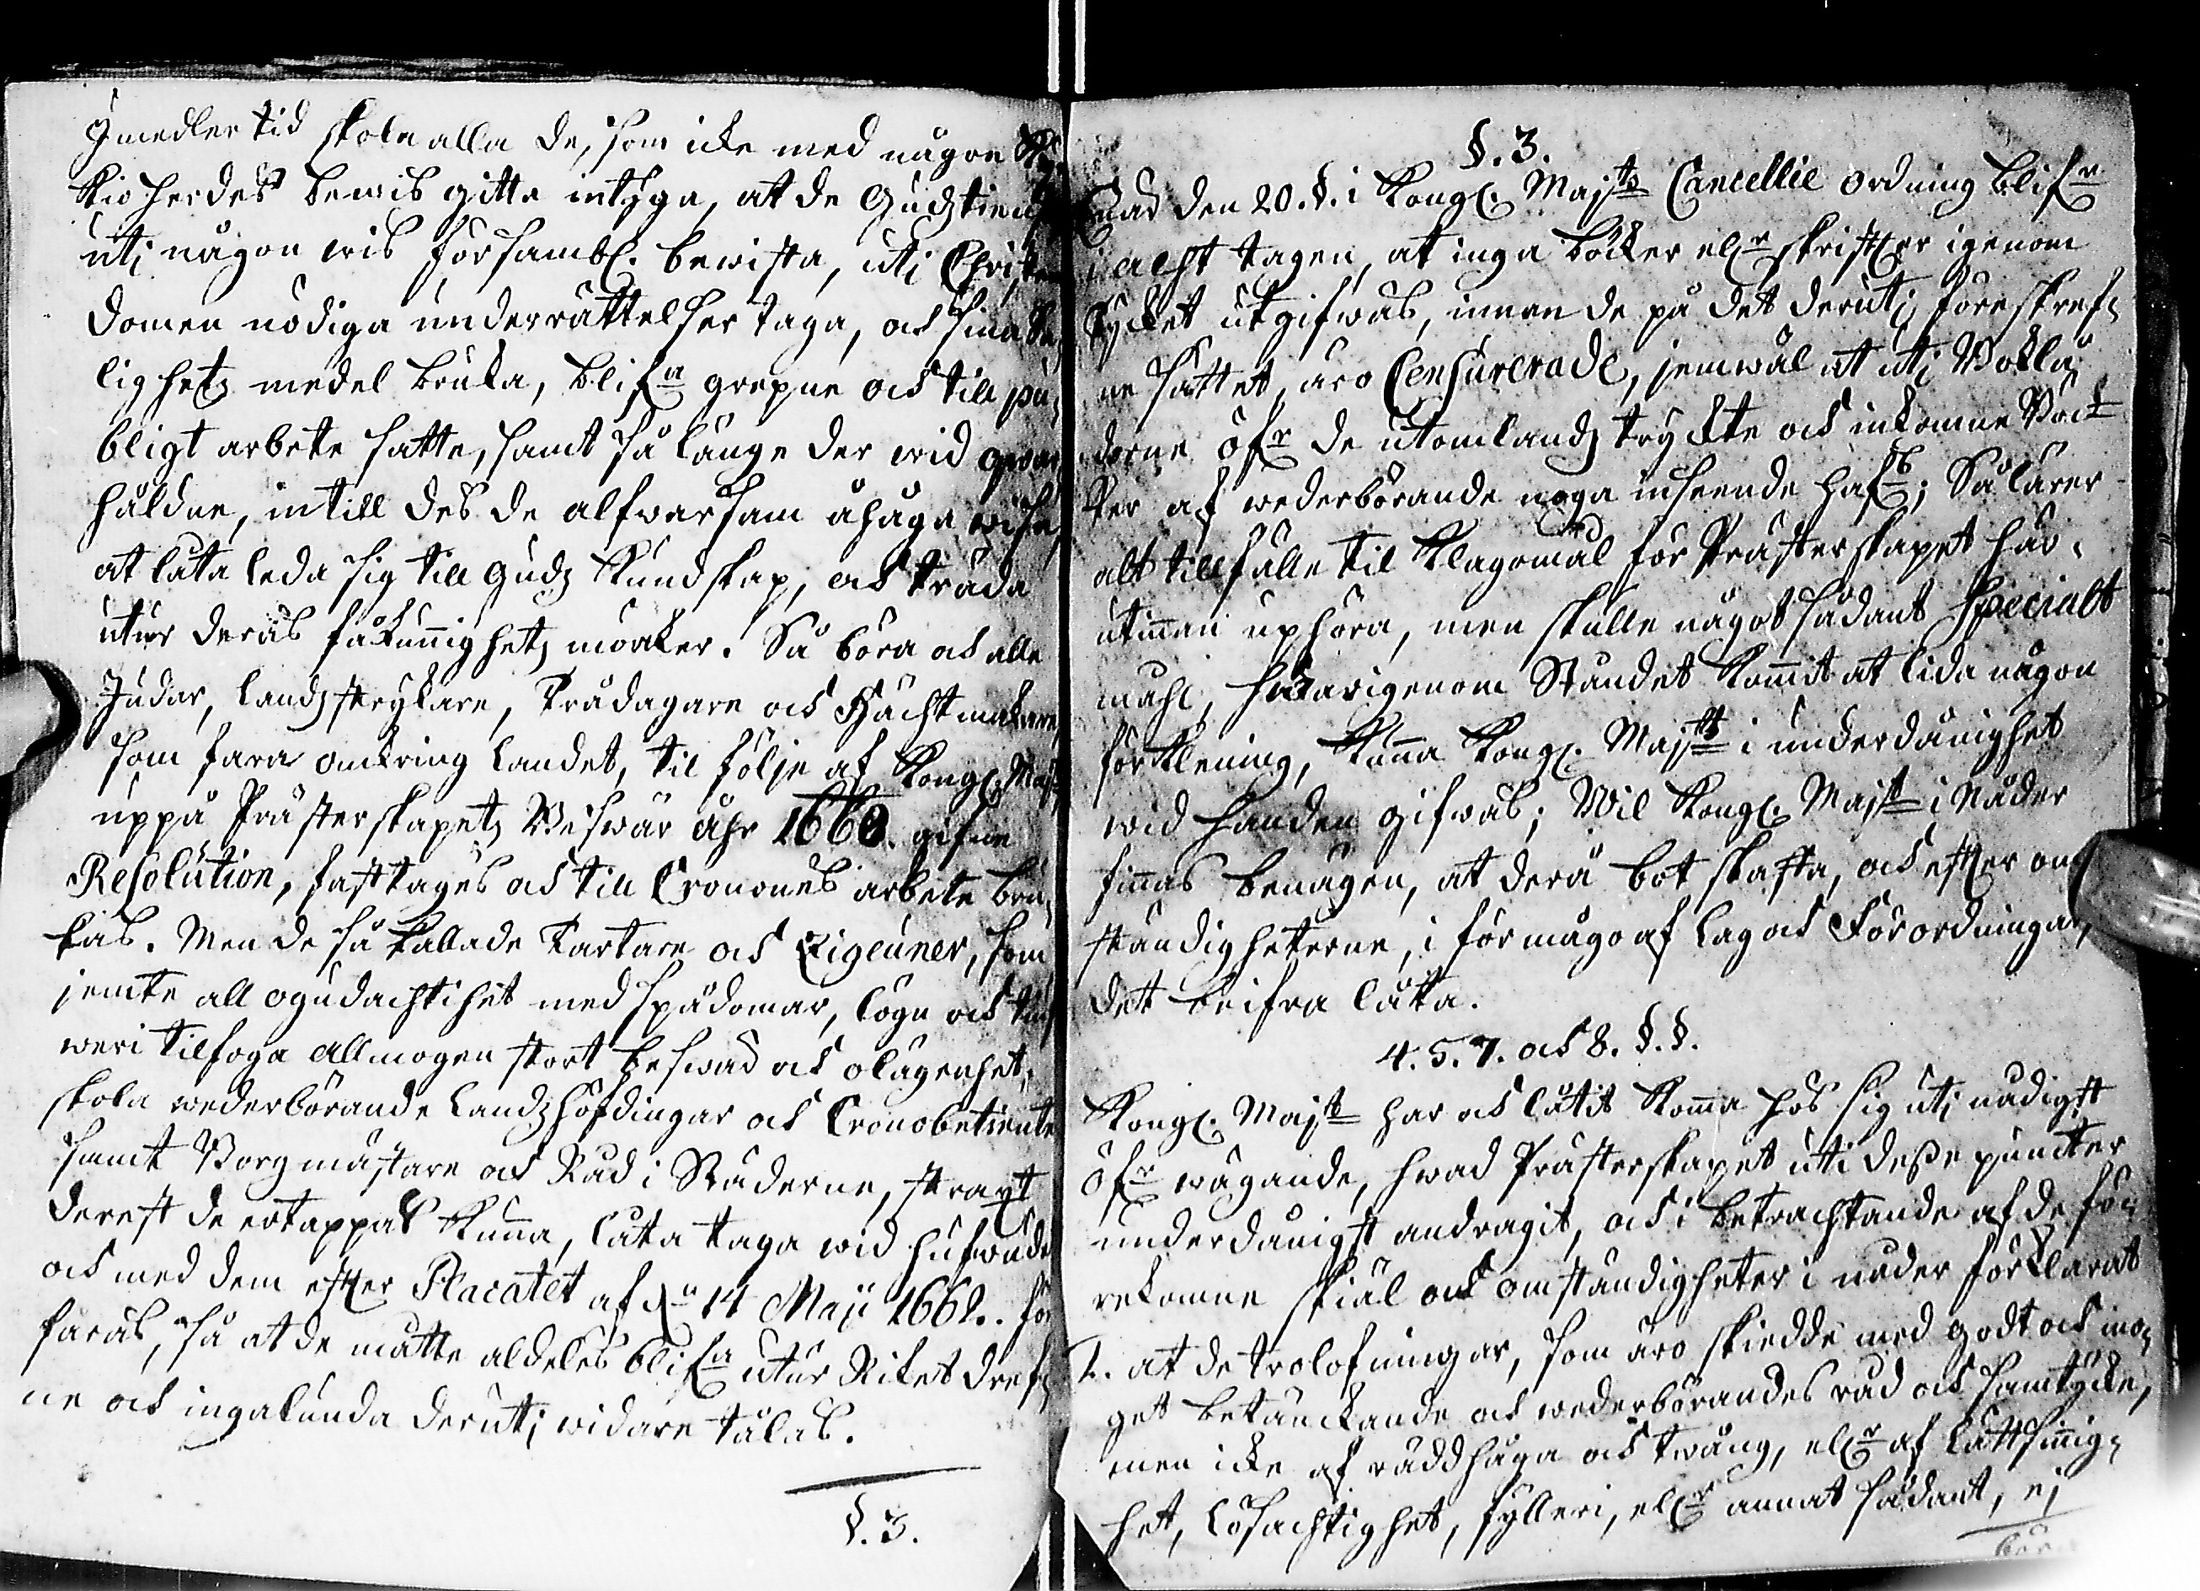 Imedler tid skola alla de, som icke med någon
Kioherdes bewis gitta intyga, at de Gudztienst
uti någon wis försambl. bewista, uti Christen
domen nödiga underrättelser taga, och sina Sa
lighetz medel bruka, blifa grepne och till pu
bligt arbete satte, samt så länge der wid qwar
håldne, in till des de alfwarsam åhåga wisa
at låta leda sig till Gudz Kundskap, och träda
utur deras fåkunnighetz mörker. Så böra och alla
Judar, landzstrykare, Trådragare och Hächtmakare,
som fara omkring Landet, til följe af Kongl. Majts
uppå Prästerskapetz Beswär åhr 1660. gifne
Resolution, fasttages och till Cronones arbete bru
kas. Men de så kallade Tartare och Zigeuner, som
jemte all ogudachtihet med spådomar, lögn och tiuf
weri tilfoga Allmogen stort beswär och olägenhet,
skola wederbörande Landzhöfdingar och Cronobetiente
samt Borgmästare och Råd i Städerne, straxt
derest de ertappas kunna, låta taga wid hufwudet
och med dem efter Placatet af dn 14 Maji 1662. för
faras, så at de måtte aldeles blifa utur Riket dref
ne och ingalunda deruti widare tålas.
§. 3.
§. 3.
Hwad den 20. §. i Kongl. Majts Cancellie ordning blifr
i acht tagen, at inga böcker elr skrifter igenom
Trycket utgifwas, innan de på det deruti föreskref
ne sättet äro Censurerade, jemwäl at uti Boklå
dorne öfr de utomlandz tryckte och inkomne Böc
ker af wederbörande noga inseende hafs; Så lärer
alt tillfälle til klagomål för Prästerskapet här
utinnan uphöra, men skulle något sådant Specialt
mahl, hwarigenom Ståndet kommit at lida någon
förklening, kunna Kongl. Majtt i underdånighet
wid handen gifwas; Wil Kongl. Majtt i Nåder
finnas benägen, at derå bot skaffa, och efter om
ständigheterne, i förmågo af Lag och Förordningar,
det beifra låta.
4. 5. 7. och 8. §. §.
Kongl. Majtt har och låtit komma hos sig uti nådigst
öfr wägande, hwad Prästerskapet uti desse puncter
underdånigst andragit, och i betrachtande af de fö
rekomne skiäl och omständigheter i nåder förklarat
1. at de trolofningar, som äro skiedde med godt och mo
get betänckande och wederbörandes råd och samtycke,
men icke af räddhåga och twång, elr af Lättsinnig
het, Lösachtighet, fylleri, elr annat sådant, ej
böra